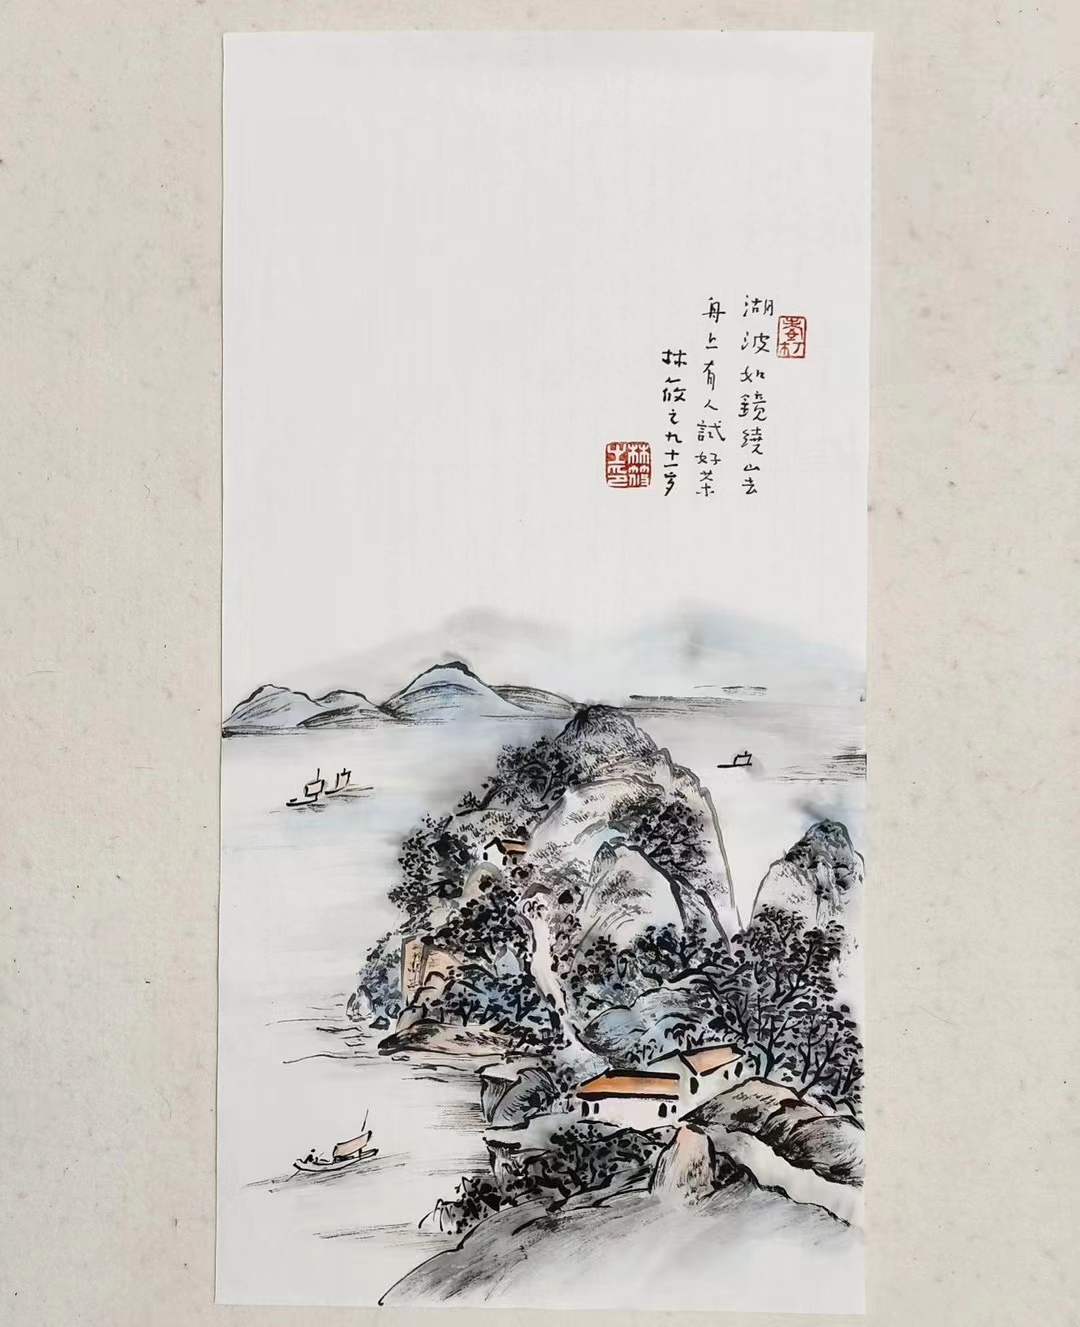 湖波如鏡繞山去
舟上有人試好茶
林筱之九十一岁
林筱之印